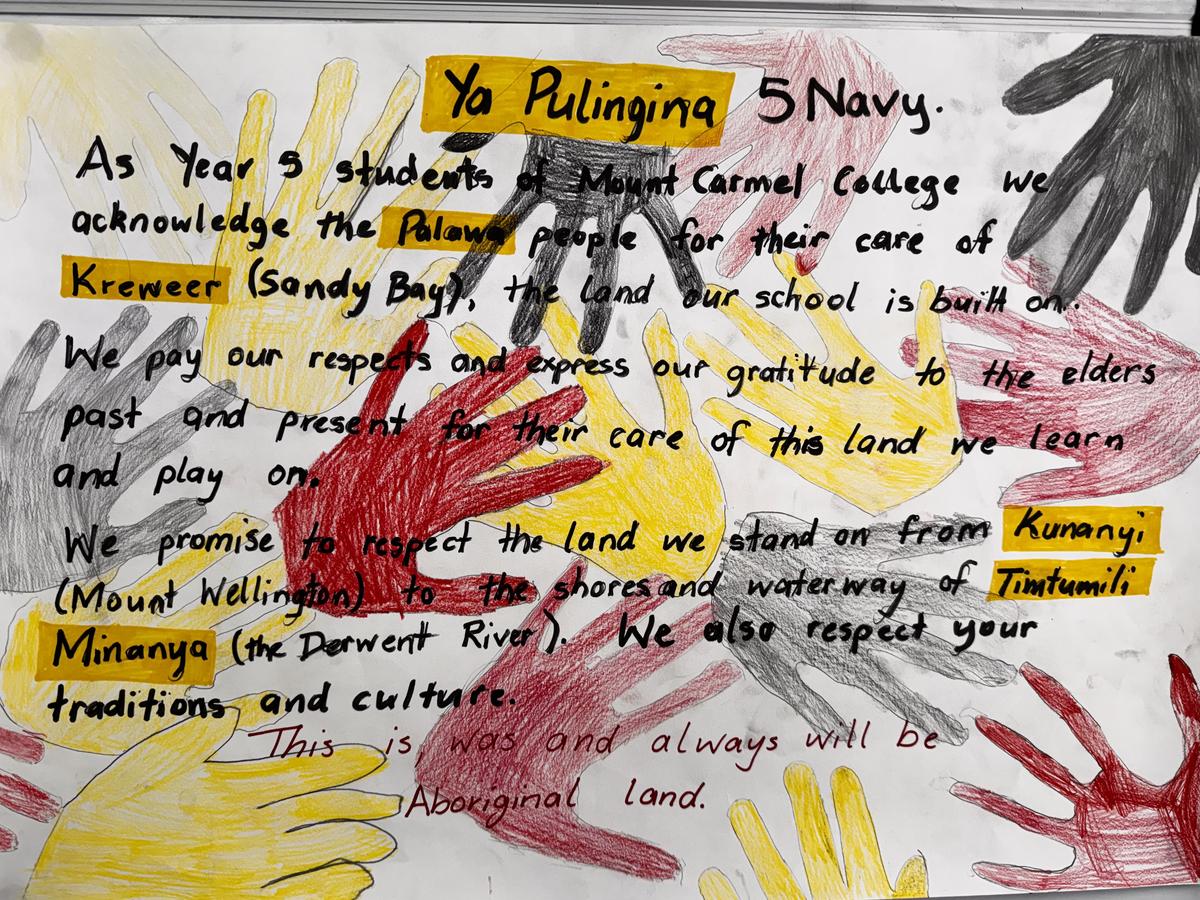 Ya Pulingina 5 Navy.
As Year 5 students of Mount Carmel College we
acknowledge the Palawa people for their care of
Kreweer (Sandy Bay), the land our school is built on.
We pay our respects and express our gratitude to the elders
past and present for their care of this land we learn
and play on.
We promise to respect the land we stand on from Kunanyi
(Mount Wellington) to the shores and waterway of Timtumili
Minanya (the Derwent River). We also respect your
traditions and culture.
This is, was and always will be
Aboriginal land.